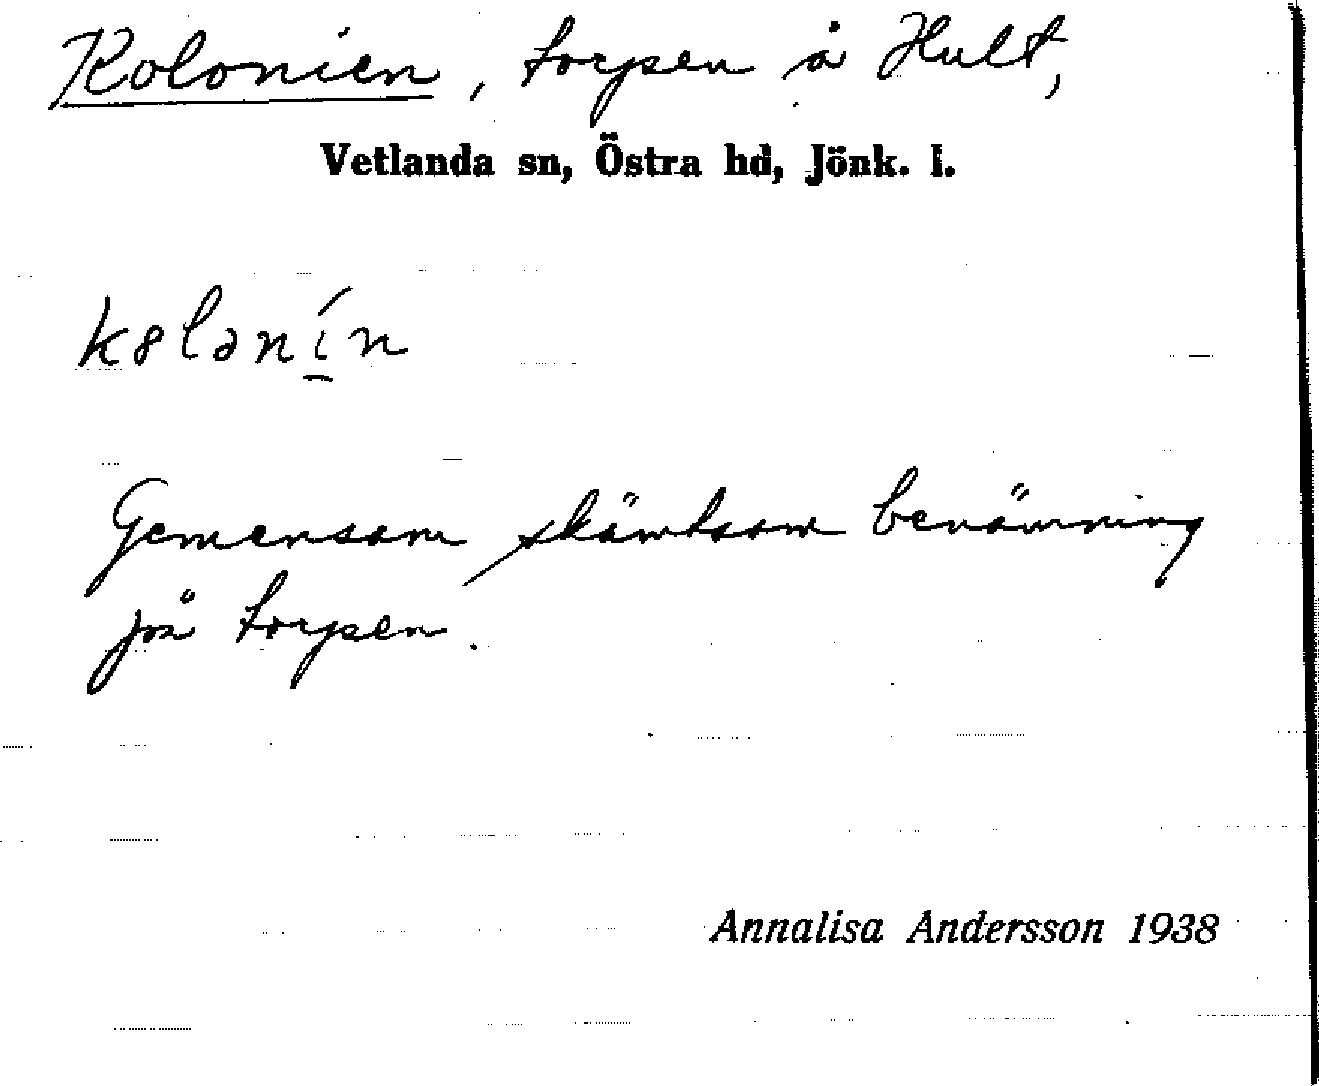 Kolonien, torpen å Hult,
Vetlanda sn, Östra hd, Jönk. l.
k8lənín
Gemensam skämtsam benämning
på torpen.
Annalisa Andersson 1938